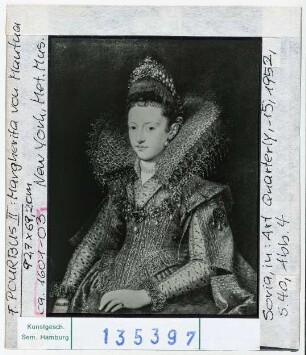 F. POURBUS II : Margherita von Mantua
92,7 x 69,2cm
ca. 1601-03
New York, Met. Mus.
Soria, in: Art Quarterly, 15, 1952,
S. 40, Abb. 4
Kunstgesch.
Sem. Hamburg
135397